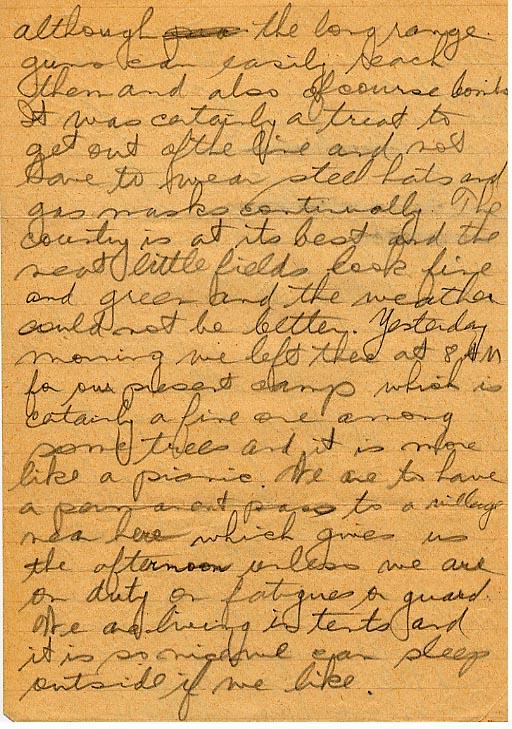 although the long range
guns can easily reach
them and also of course bombs
It was certainly a treat to
get out of the line and not
have to wear steel hats and
gas masks continually. The
country is at its best and the
neat little fields look fine
and green and the weather
could not be better. Yesterday
morning we left there at 8 AM
for our present camp which is
catainly a fine one among
some trees and it is more
like a picnic. We are to have
a permanent pass to a village
near here which gives us
the afternoon unless we are
on duty on fatigues or guard.
We are living in tents and
it is so nice we can sleep
outside if we like.